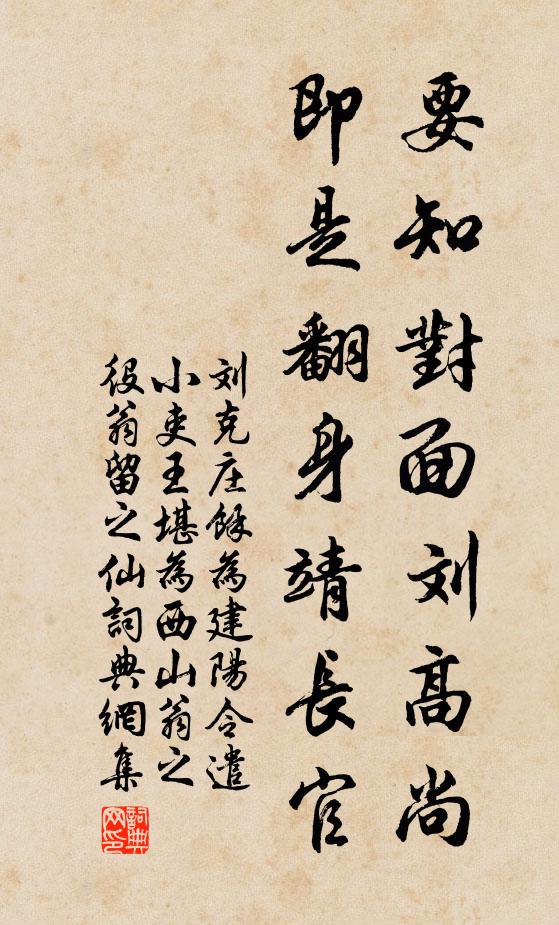 要知對面刘高尚
即是翻身靖長官
刘克庄餘為建陽令遣
小吏王堪為西山翁之
役翁留之仙詞典網集
詞典网印